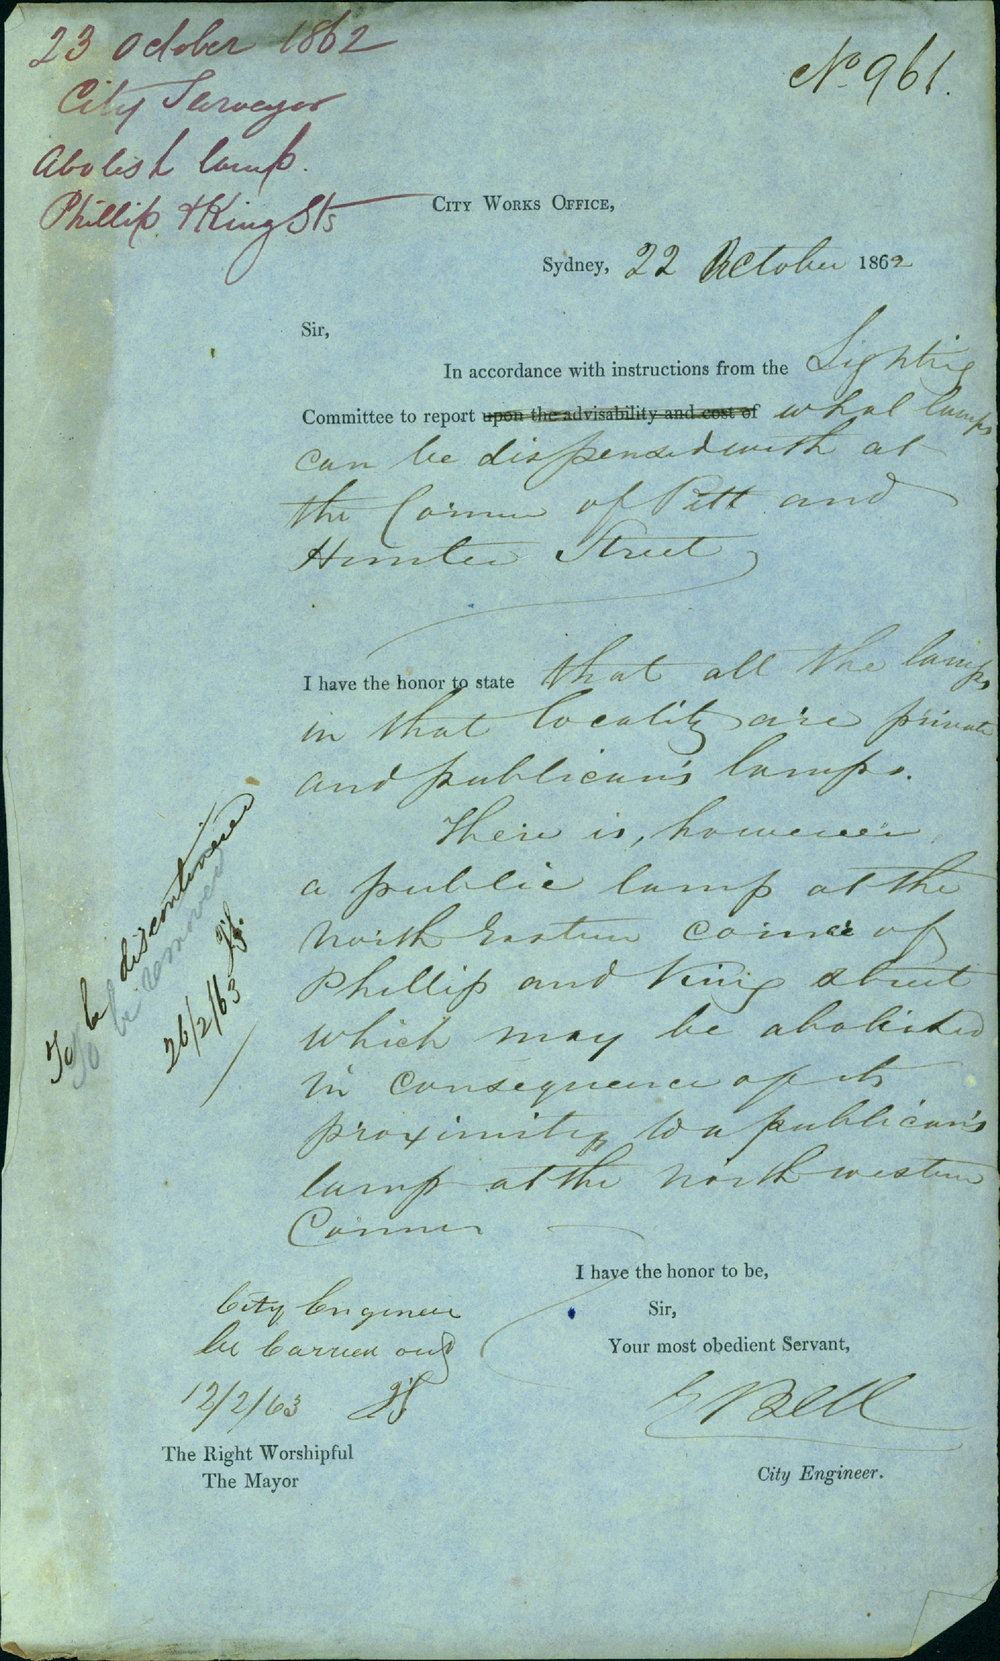 23 October 1862
City Surveyor
Abolish lamp.
Phillip & King Sts
No. 961.
City Works Office,
Sydney, 22 October 1862
Sir,
In accordance with instructions from the Lighting
Committee to report upon the advisability and cost of what lamps
can be dispensed with at
the Corner of Pitt and
Hunter Street
I have the honor to state that all the lamps
in that locality are private
and publican's lamps.
There is, however,
a public lamp at the
North Eastern corner of
Phillip and King street
which may be abolished
in consequence of its
proximity to a publican's
lamp at the North western
Corner
To be discontinued
To be removed
26/2/63
I have the honor to be,
Sir,
Your most obedient Servant,
E Bell
City Engineer.
City Engineer
be Carried out
12/2/63
The Right Worshipful
The Mayor